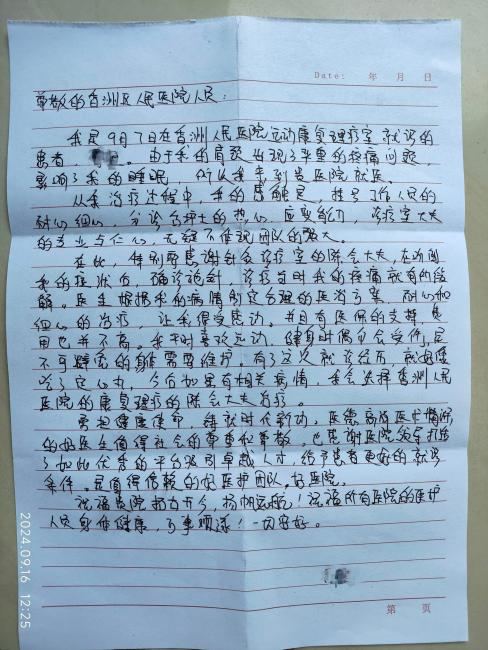 Date: 年 月 日
尊敬的香洲区人民医院人员:
我是9月7日在香洲人民医院运动康复理疗室就诊的
患者, 。由于我的肩颈出现了严重的疼痛问题,
影响了我的睡眠,所以我来到贵医院就医。
从我治疗过程中,我的感触是,挂号工作人员的
耐心细心,分诊台护士的热心,应变能力,诊疗室大夫
的专业与仁心,无疑不体现团队的强大。
在此,特别要感谢针灸诊疗室的陈会大夫,在听闻
我的症状后,确诊施针,诊疗当时我的疼痛就有所缓
解。医生根据我的病情制定合理的医治方案,耐心和
细心的治疗,让我很受感动。并且有医保的支持,费
用也并不高。我平时喜欢运动,健身时偶尔会受伤,是
不可避免的身体需要维护。有了这次就诊经历,就如同
吃了定心丸,今后如果有相关病情,我会选择香洲人民
医院的康复理疗的陈会大夫治疗。
勇担健康使命,铸就时代新功。医德高尚医术精湛
的好医生值得社会的尊重和尊敬,也感谢医院领导打造
了如此优秀的平台吸引卓越人才,给予患者更好的就诊
条件。是值得信赖的好医护团队,好医院。
祝福贵院 扬帆远航!祝福所有医院的医护
人员身体健康,万事顺遂!一切安好。
第 页
2024.09.16 12:25